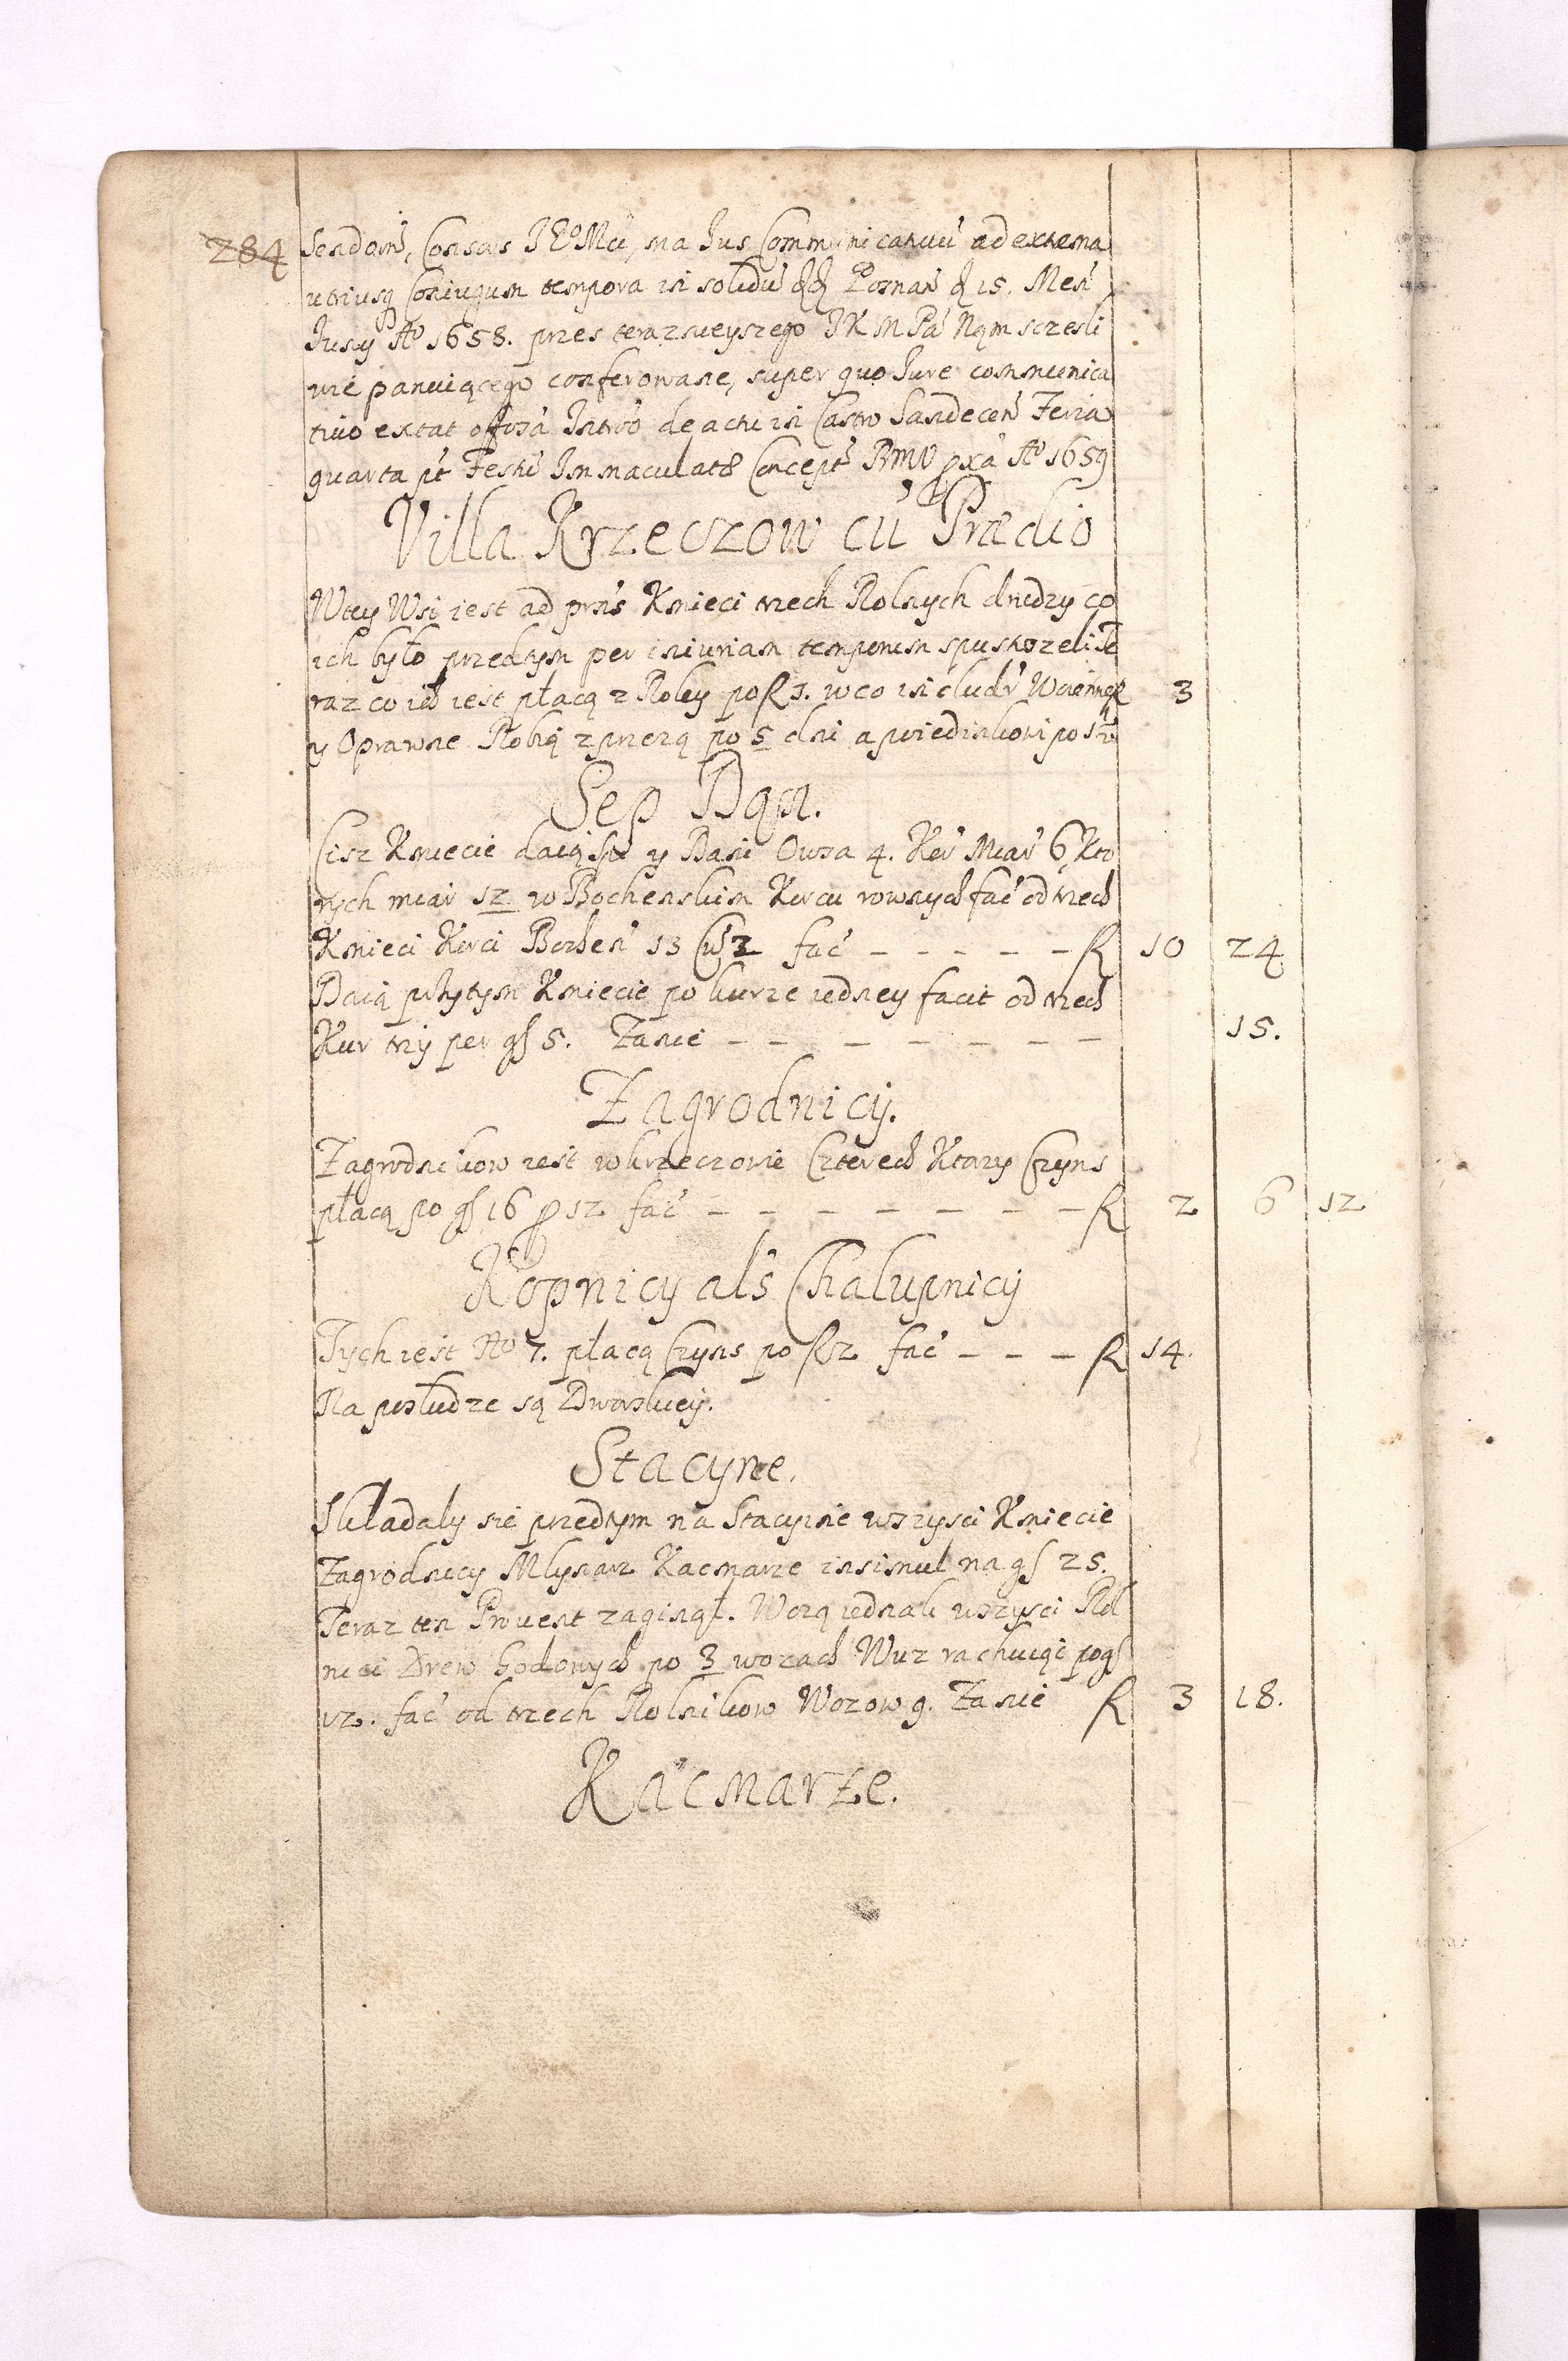 284
Sendom, Consors JEoMci, na Jus Communicativu ad extrema
utriusq Coniugum tempora in solidu dd Poznan d 15. Men
Juny Ao 1658. przes teraznieyszego JK M Pa Nqm sczesli
wie panuiącego conferowane, super quo Jure communica
tivo extat offosa Intro de actu in Castro Sandecen Feria
quarta pt Festu Immaculatæ Concept BMV pxa Ao 1659
Villa Krzeczow cu Prædio
Wtey Wsi iest ad prns Kmieci trzech Rolnych drudzy co
ich było przedtym per iniuriam temporum spustoszeli Te
raz co ich iest płacą z Roley po R 1. w co includr Woienne R 3
y Oprawne Robią z przerą po 5 dni a poiedinkowi po 12
Sep Dąn.
Cisz Kmiecie daią Sp y Dani Owsa 4. Ker Miar 6 Kto
rych miar 12 w Bochenskim Kercu rownych fac od trzech
Kmieci Kerci Bochen 13 Cw 2 fac - - - - - R 10 24
Daią przytym Kmiecie po kurze iedney facit od trzech
Kur trzy per gs 5. Zanie - - - - - - - - 15.
Zagrodnicy.
Zagrodnikow iest w krzeczowie Czterech Ktorzy Czyns
płacą po gs 16 p 12 fac - - - - - - - R 2 6 12
Kopnicy als Chalupnicy
Tych iest No 7. płacą Czyns po R 2 fac - - - R 14.
Na posłudze są Dworskiey.
Stacyne.
Składaly sie przedtym na Stacyine wszysci Kmiecie
Zagrodnicy Mlynarz Kacmarze insimul na gs 25.
Teraz ten Provent zaginął. Wozą iednak wszysci Rol
nici Drew Godowych po 3 wozach Wuz rachuiąc po gs
12. fac od trzech Rolnikow Wozow 9. Zanie R 3 18.
Kacmarze.